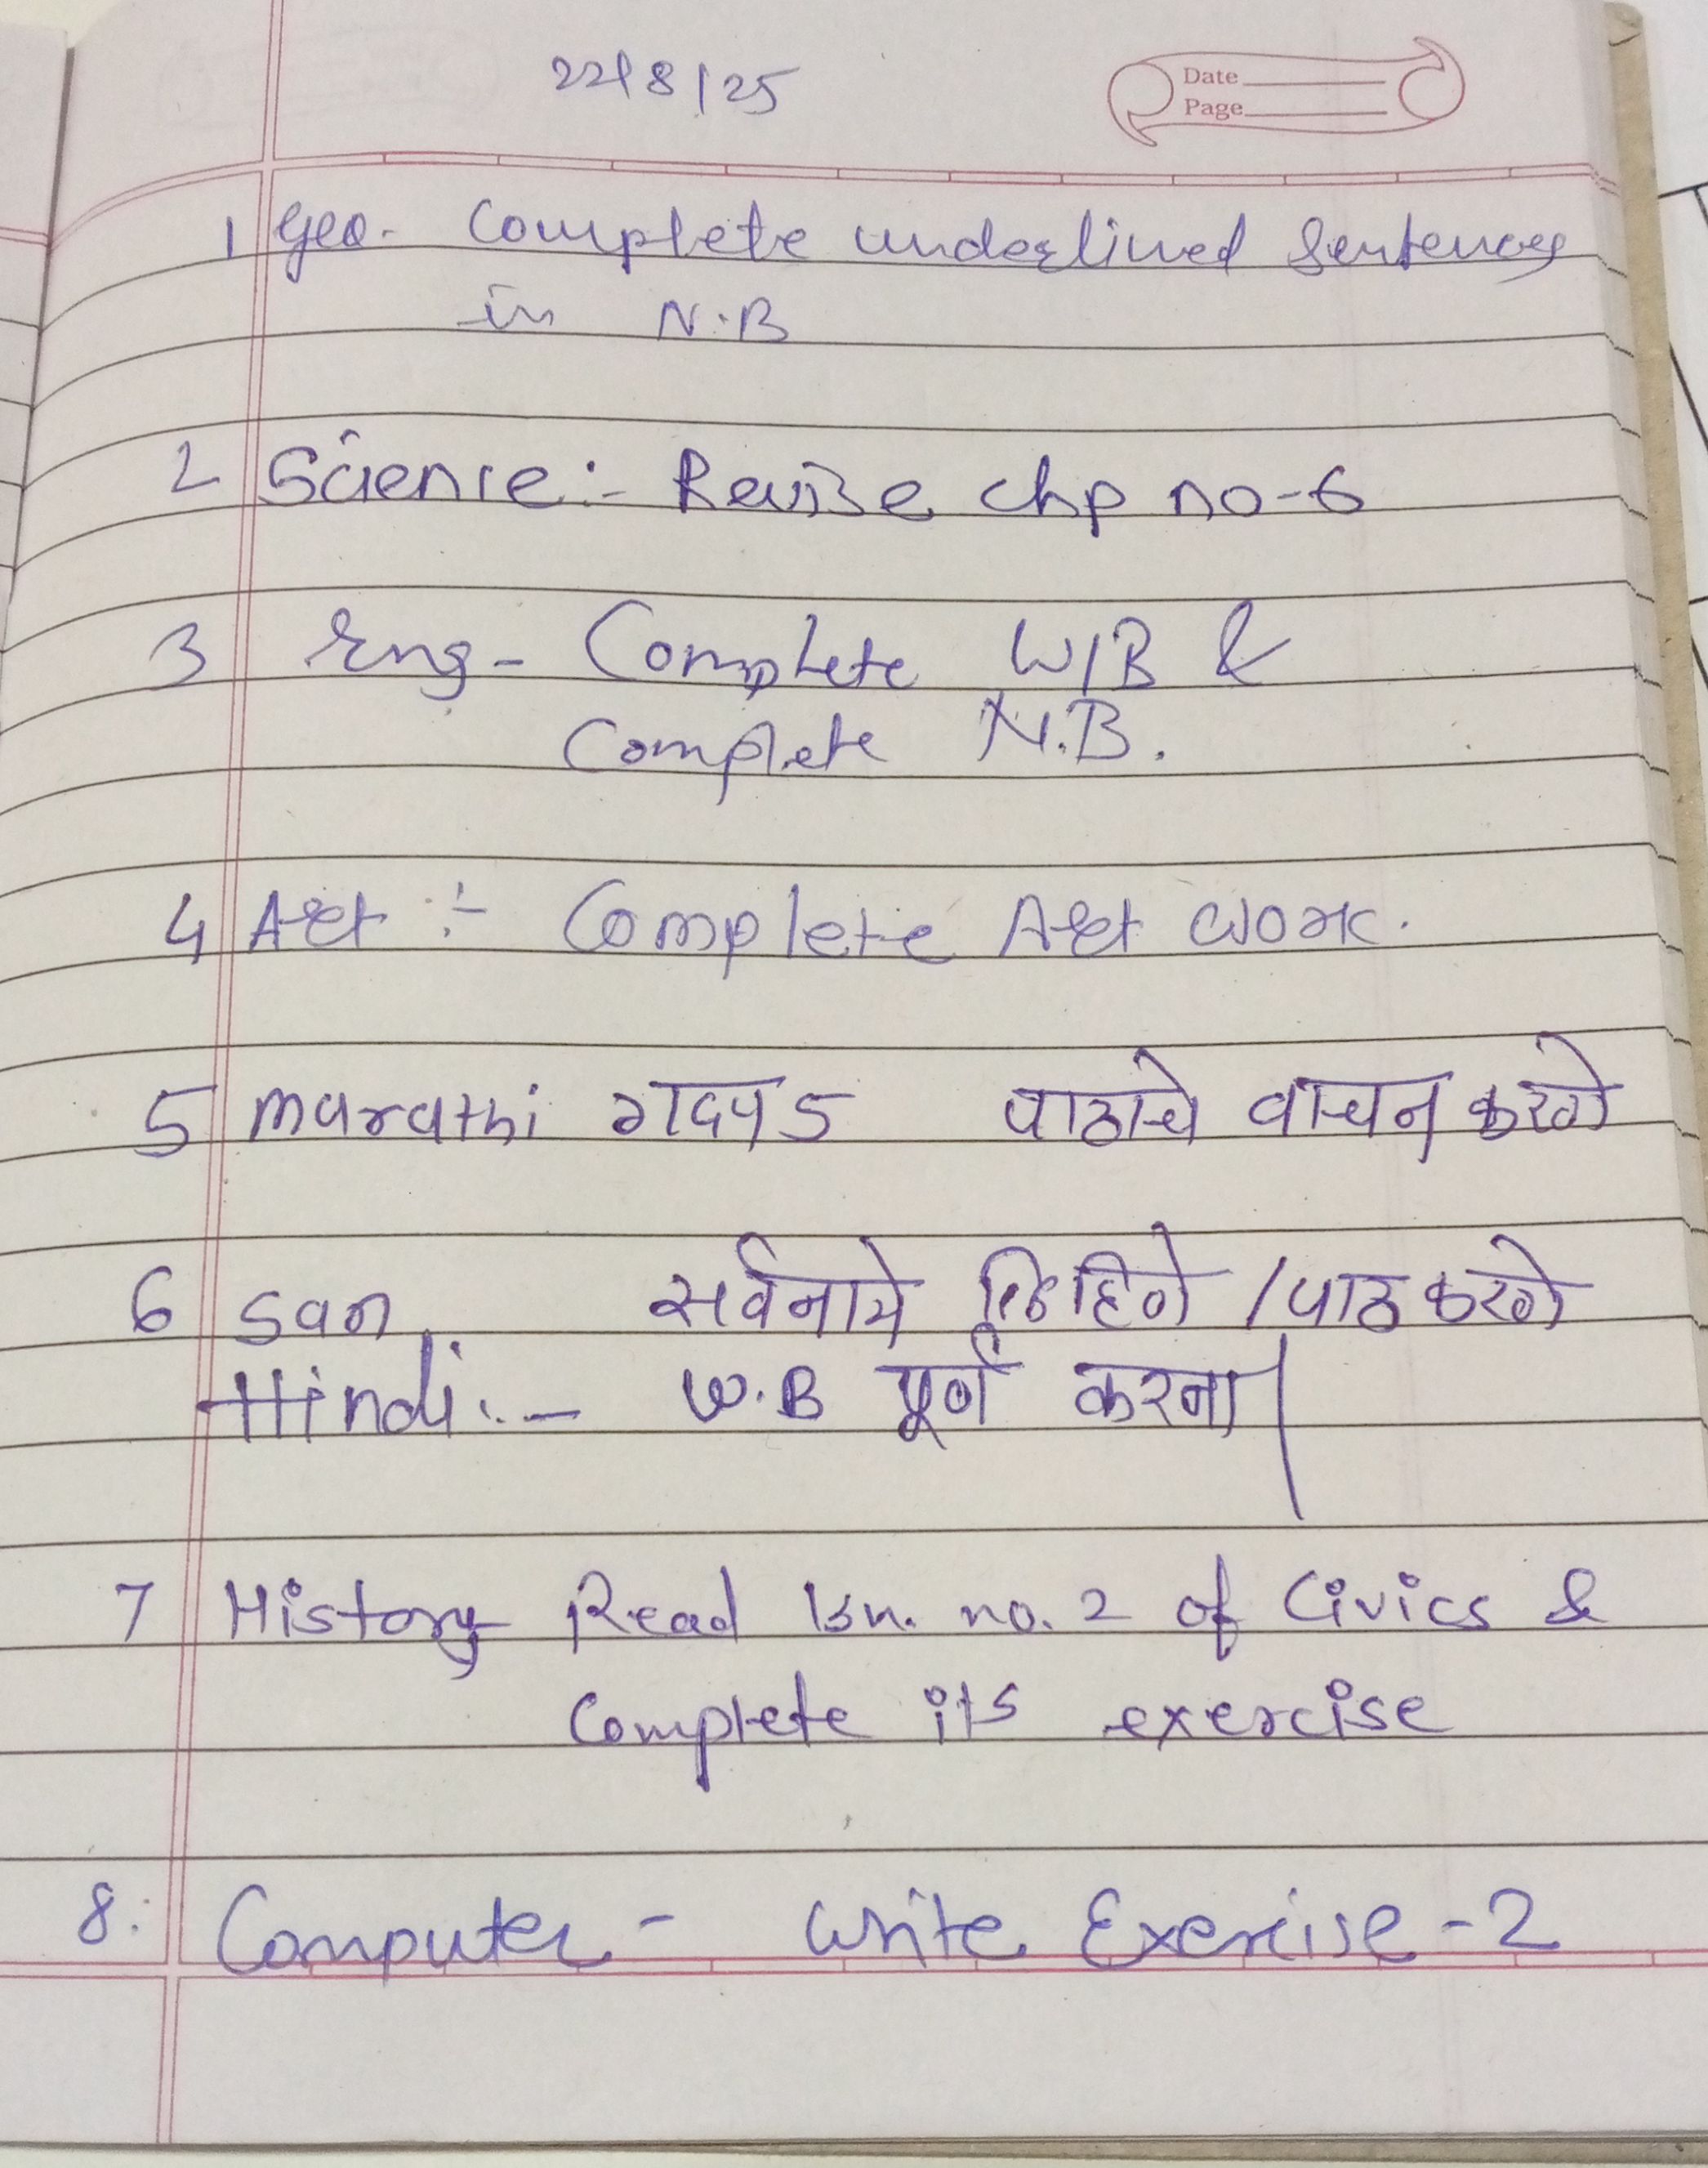 22/8/25
Date
Page
1 Geo. Complete underlined sentences
in N.B
2 Science:- Revise chp no-6
3 Eng- Complete W/B &
Complete N.B.
4 Art :- Complete Art work.
5 marathi गदय 5 पाठाचे वाचन करणे
6 san सर्वनामे लिहिणे / पाठ करणे
Hindi:- W.B पूर्ण करना|
7 History Read lsn. no. 2 of Civics &
Complete its exercise
8. Computer - Write Exercise-2